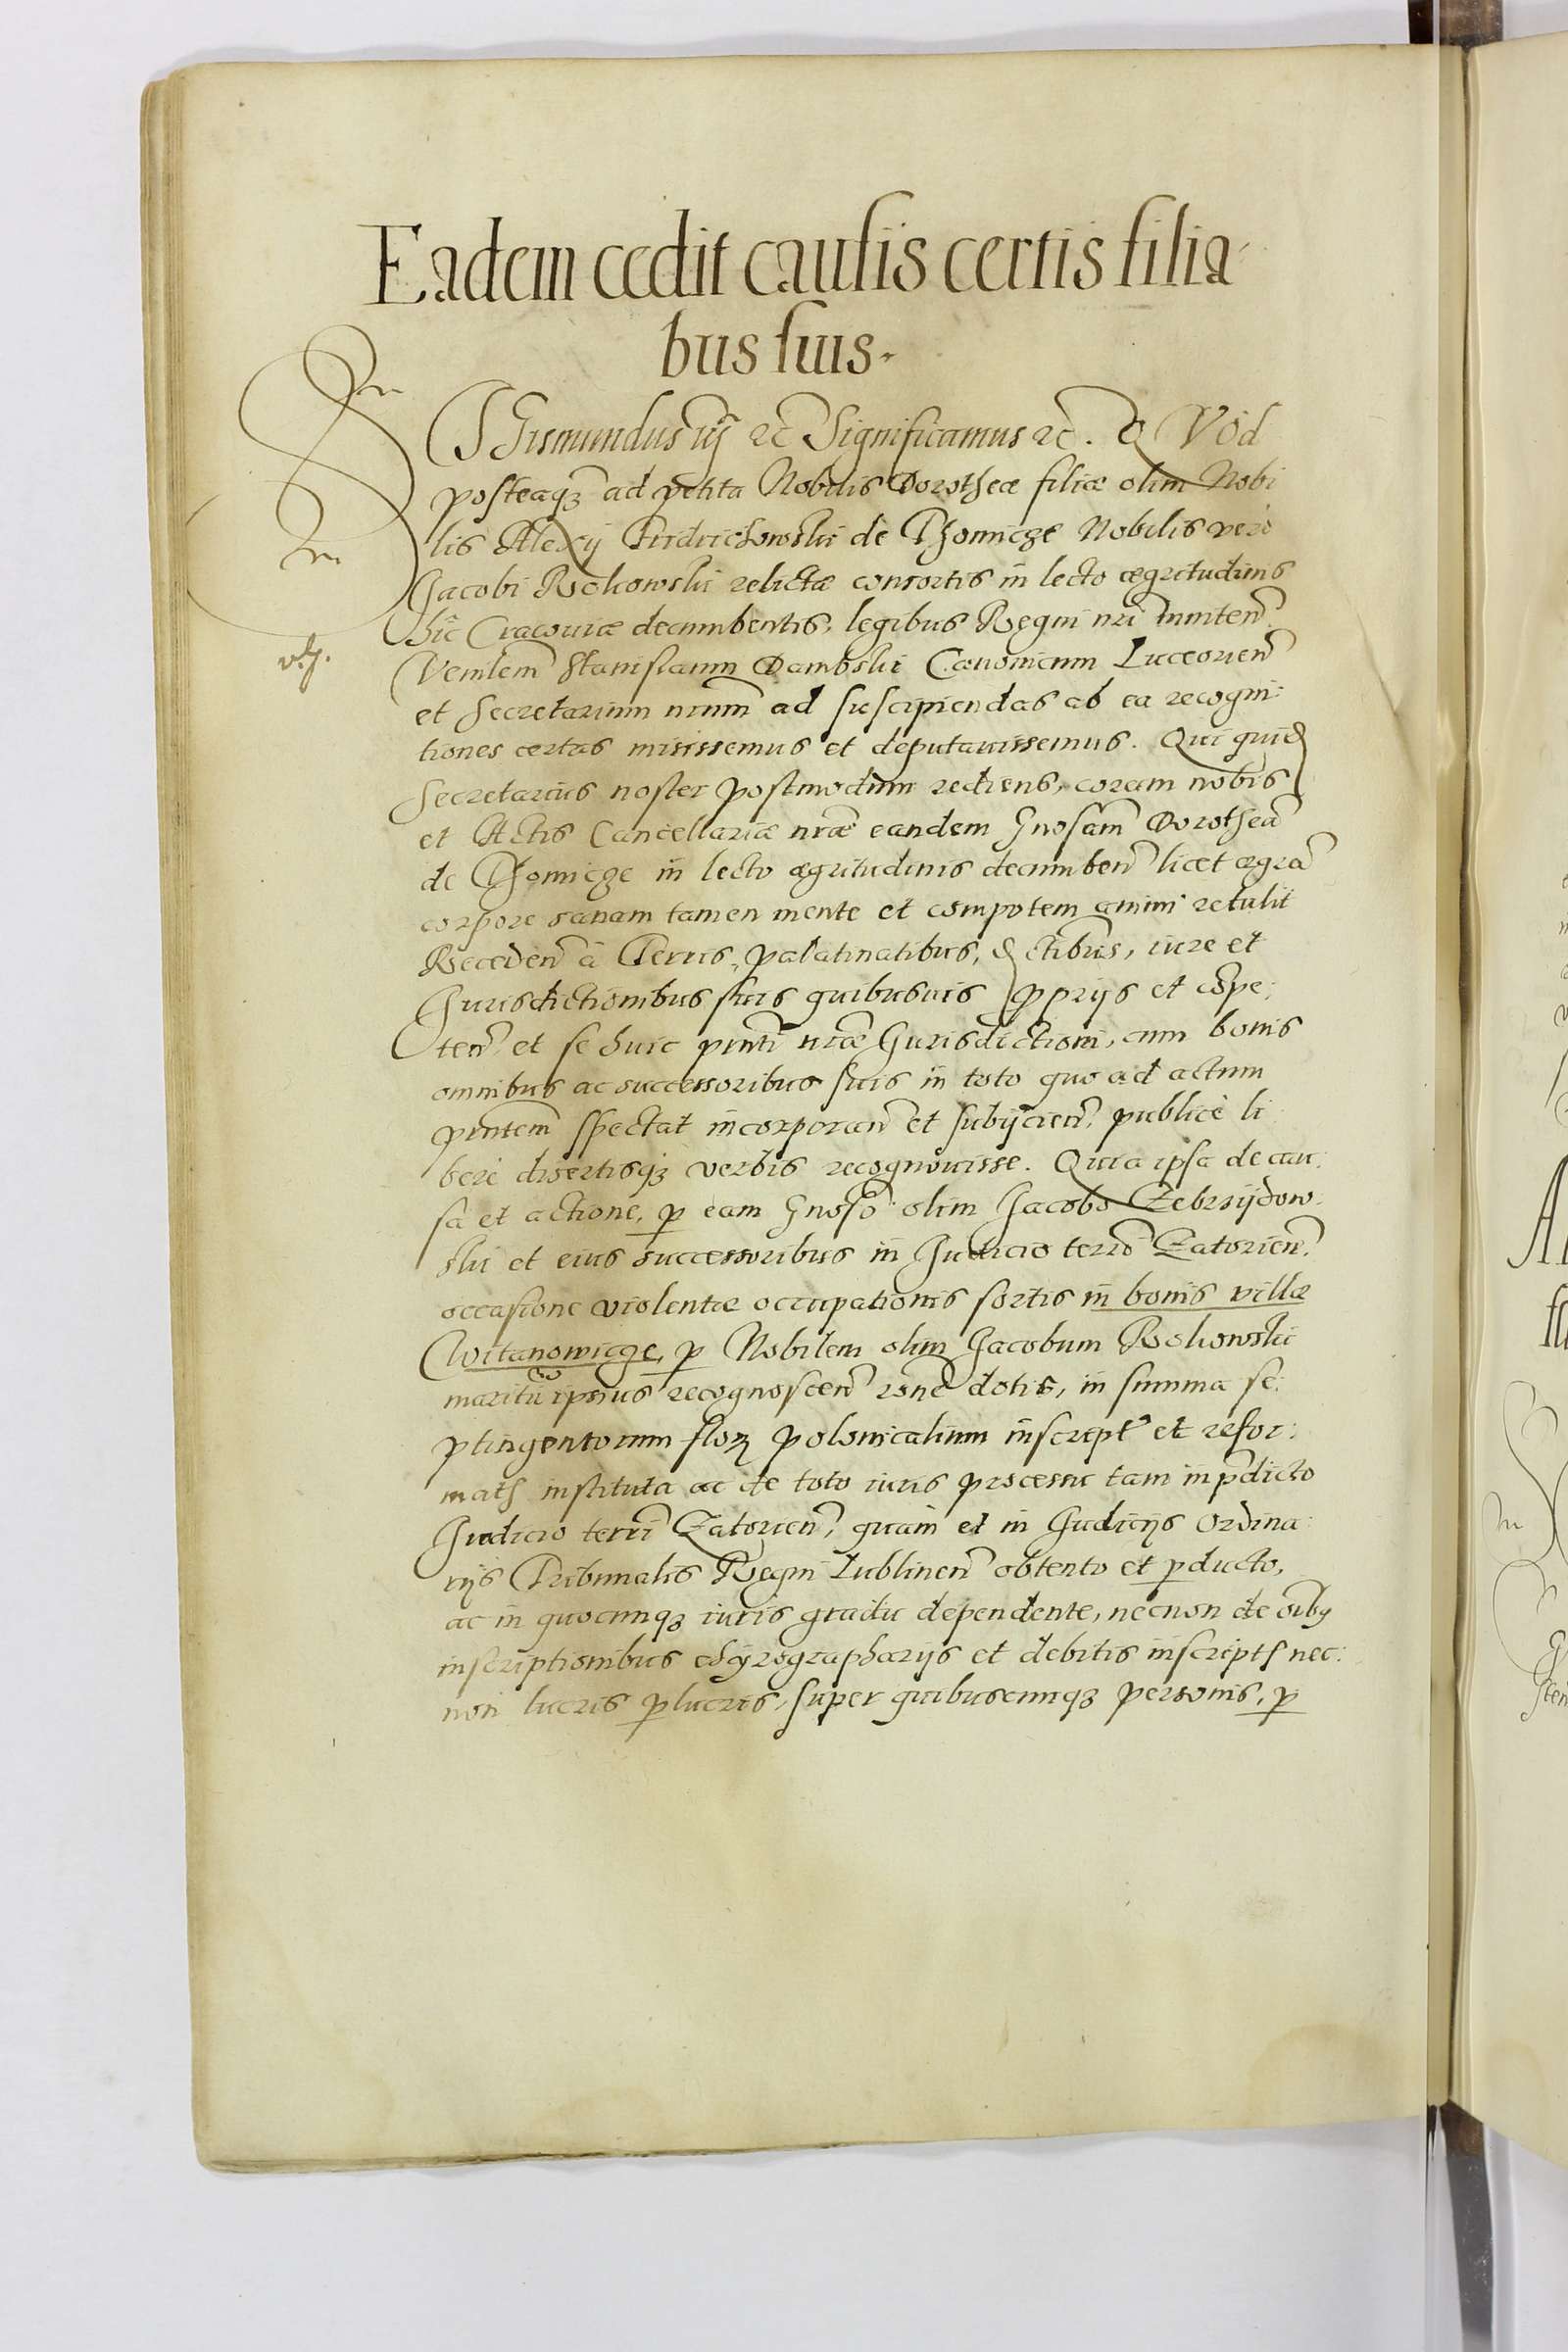 Eadem cedit causis certis filia-
bus suis.
SIgismundus iij etc Significamus etc. QVod
posteaq3 ad petita Nobilis Dorotheæ filiæ olim Nobi
lis Alexij Fridrichowski de Thomicze Nobilis vero
Jacobi Rokowski relictæ consortis in lecto ægritudinis
hic Cracouiæ decumbentis, legibus Regni nri inniten̄
Venilem̄ Stanislaum Dambski Canonicum Luceorien̄
et Secretarium nrum̄ ad suscipiendas ab ea recogni:
tiones certas misissemus et deputauissemus. Qui quid̄
Secretarius noster postmodum rediens, coram nobis
et Actis Cancellariæ nræ eandem Gnosam̄ Dorotheā
de Thomicze in lecto ægritudinis decumben̄ licet ægrā
corpore sanam tamen mente et compotem animi retulit
Receden̄ à Terris, palatinatibus, dctibus, iure et
Jurisdictionibus suis quibusuis ꝓprijs et cōpe:
ten̄ et se huic pnti nræ Jurisdictioni, cum bonis
omnibus ac successoribus suis in toto quo ad actum
pntem̄ spectat incorporan̄ et subijcien̄, publicè li
berè disertisq3 verbis recognouisse. Quia ipsa de cau:
sa et actione, ꝑ eam Gnosō olim Jacobo Zebrzijdow-
ski et eius successoribus in Judicio terrō Zatorien̄,
occasione violentæ occupationis sortis in bonis villæ
Witanowicze, ꝑ Nobilem olim Jacobum Rokowski
maritū ipsius recognoscen̄ rōne dotis, in summa se:
ptingentorum floꝝ polonicalium inscript̄ et refor:
mats instituta ac de toto iuris processu tam in p̄dicto
Judicio terri Zatorien̄, quàm et in Judicijs Ordina:
rijs Tribunalis Regni Lublinen̄ obtento et ꝑducto,
ac in quocunq3 iuris gradu dependente, necnon de oib9
inscriptionibus chyrographarijs et debitis inscripts nec:
non lucris ꝑlucris, super quibuscunq3 personis, ꝑ